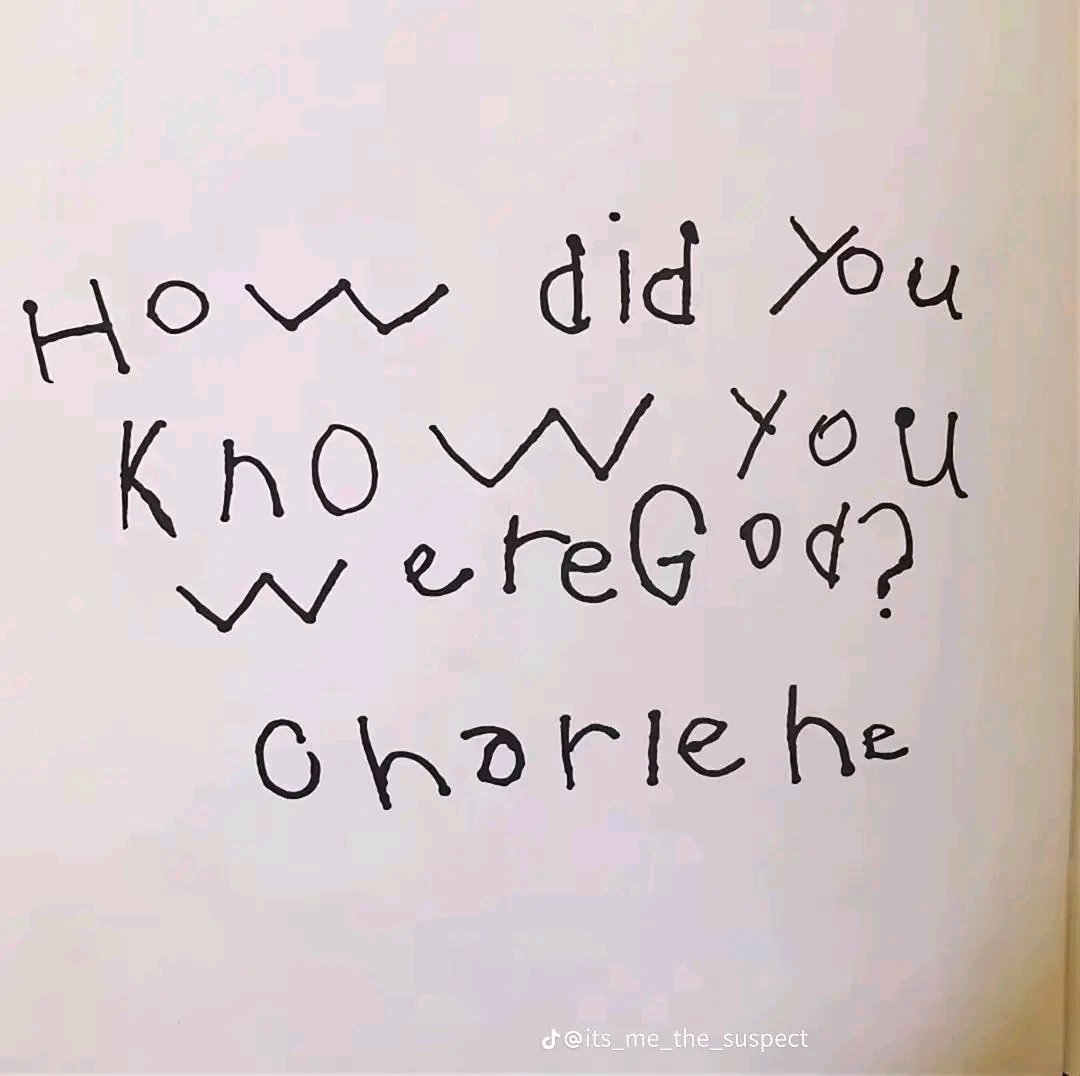 How did you
Know you
were God?
Charlene
@its_me_the_suspect